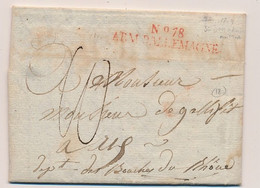 No 78
ARM. D'ALLEMAGNE
A Monsieur
Monsieur De gallifet
a aix
dept des Bouches du Rhône